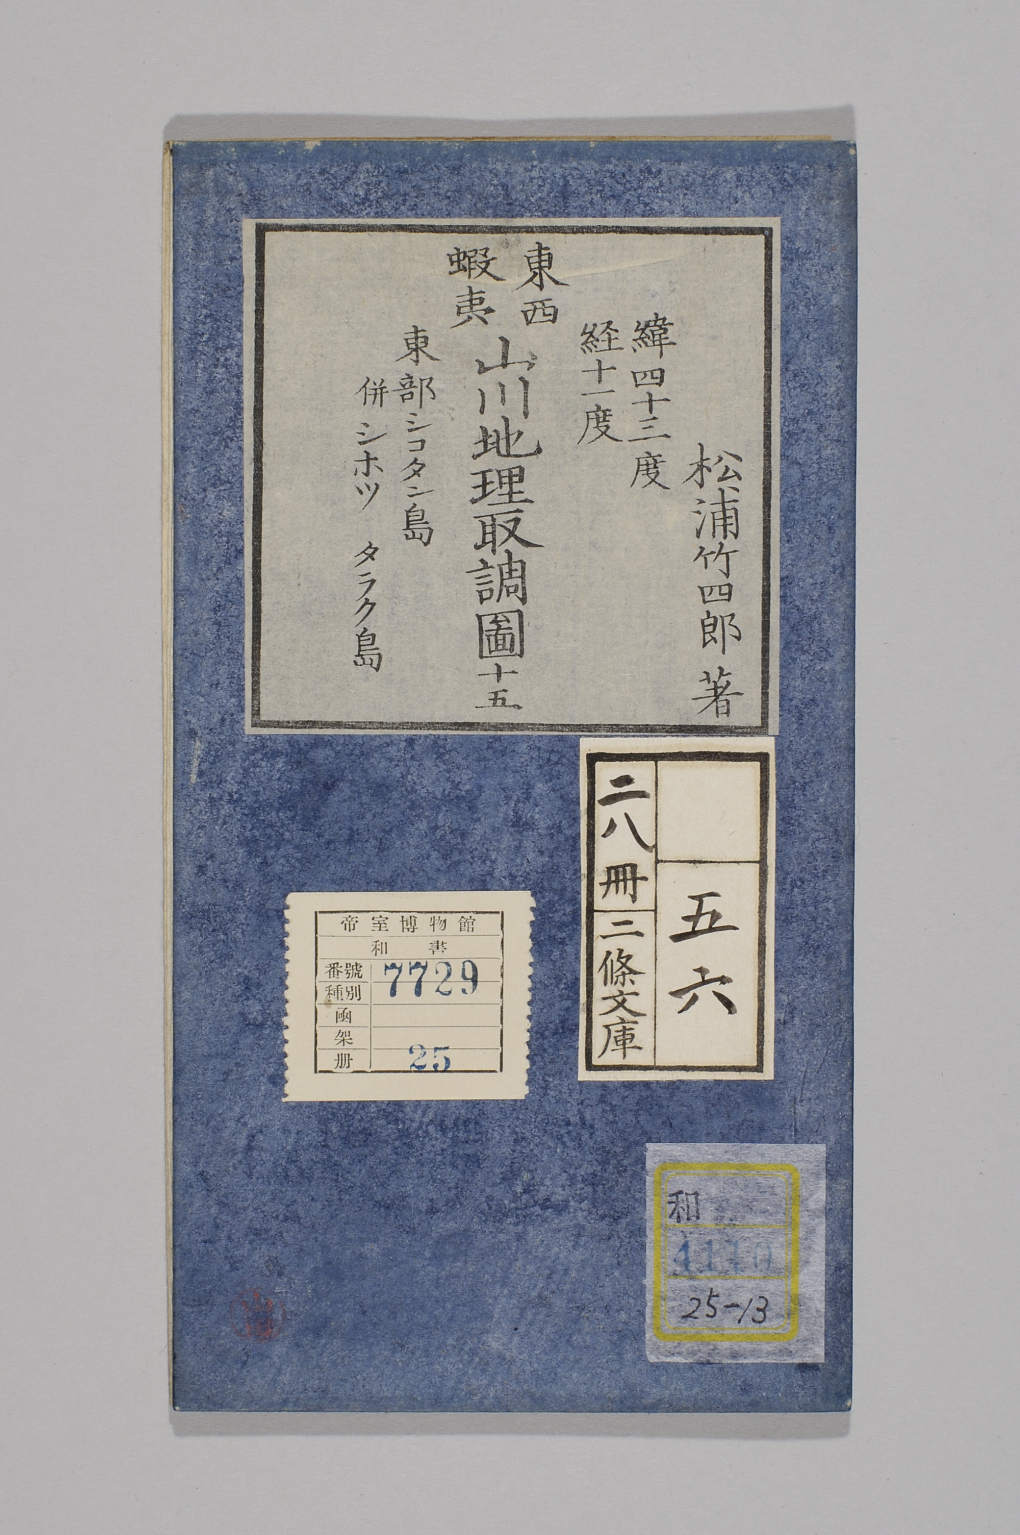 松浦竹四郎著
緯四十三度
経十一度
東西
蝦夷
山川地理取調圖十五
東部シコタン島
併シホツ タラク島
五六
二八冊
二條文庫
帝室博物館
和書
番號 7729
種別
函
架
册 25
和
4110
25-13